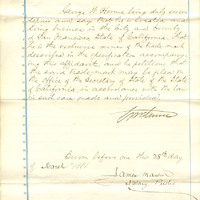 George H. Hume being duly sworn
deposes and say that he is located and
doing business in the City and County
of San Francisco State of California. That
he is the exclusive owner of the trade-mark
described in the specification accompanying
this affidavit and he petitions that
the said trade-mark may be filed in
the Office of the Secretary of State of the State
of California in accordance with the law
in such case made and provided.
Sworn before me this 28th day
of
James Mason
Notary Public